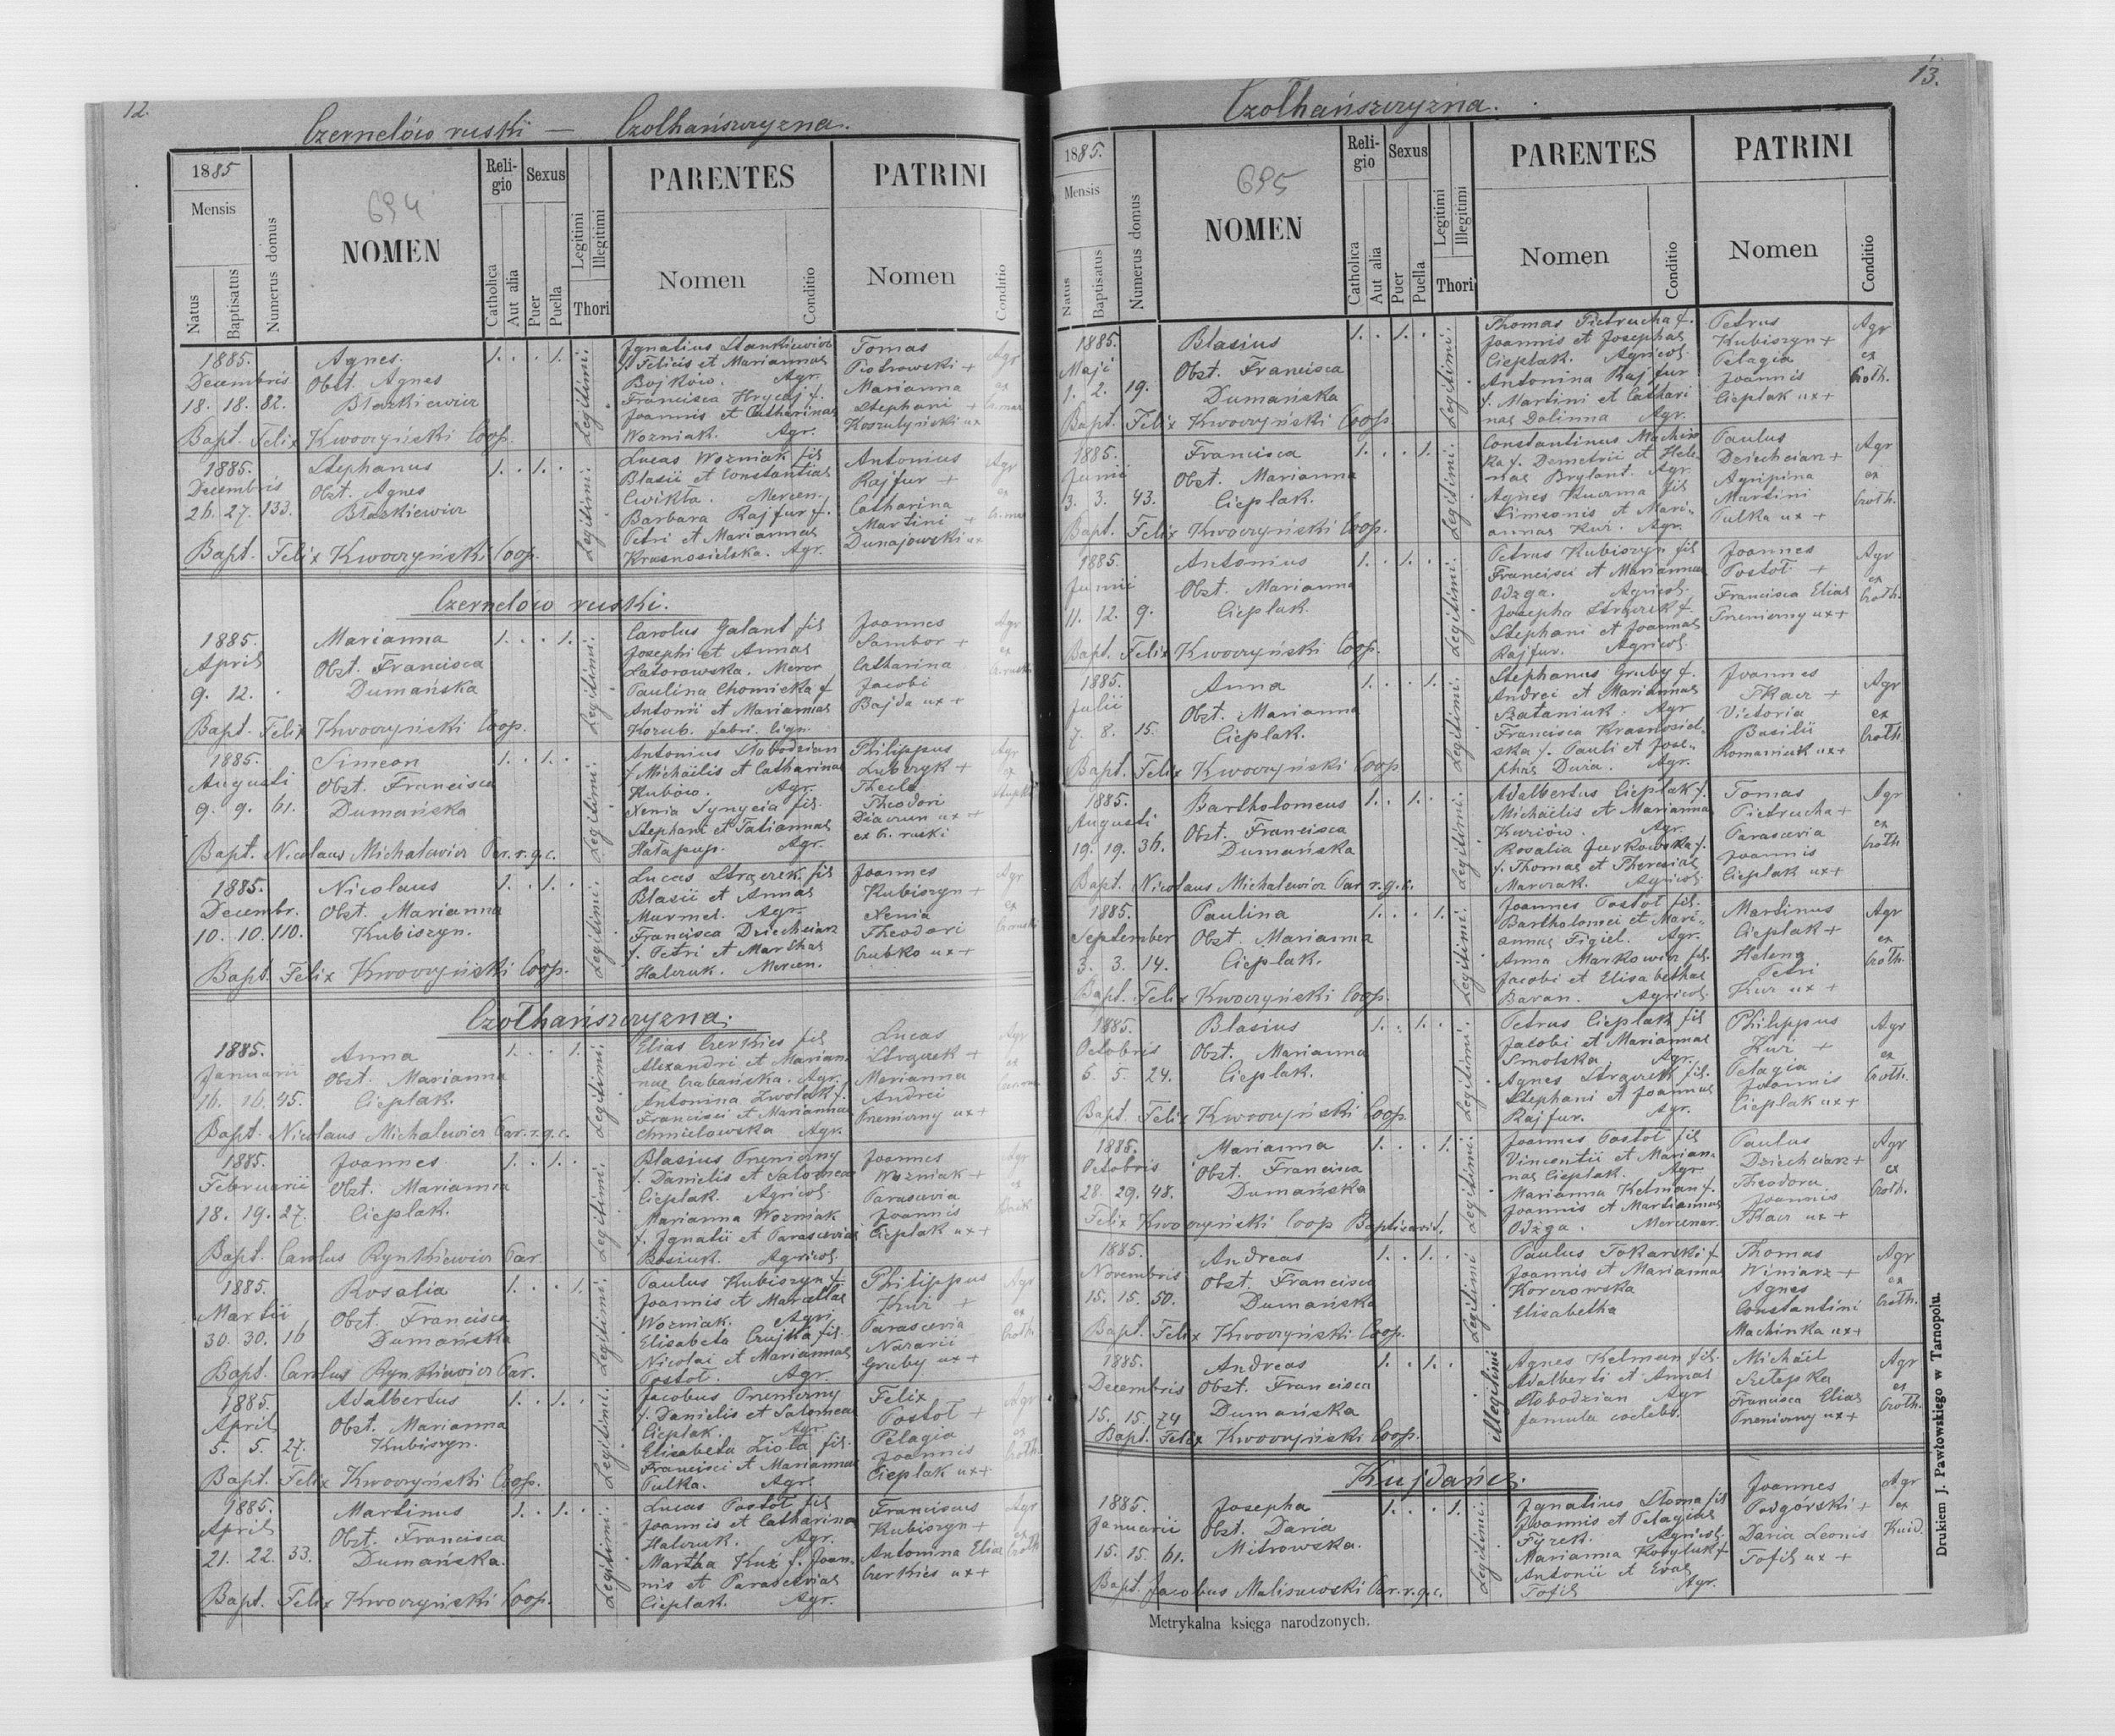 12.
Czernelów ruski — Czołhańszczyzna.
1885
Mensis
Natus
Baptisatus
Numerus domus
694
NOMEN
Religio
Catholica
Aut alia
Sexus
Puer
Puella
Legitimi
Illegitimi
Thori
PARENTES
Nomen
Conditio
PATRINI
Nomen
Conditio
1885.
Decembris
18. 18. 82.
Agnes.
Obst. Agnes
Błazkiewicz
1. . . 1.
Legitimi.
Ignatius Stankiewicz
f. Felicis et Mariannae
Bojków. Agr.
Francisca Hrycaj f.
Joannis et Catharinae
Wozniak. Agr.
Tomas
Piotrowski +
Marianna
Stephani +
Koszulyński ux
Agr
ex
Bapt. Felix Kwoczyński Coop.
1885.
Decembris
26. 27. 133.
Stephanus
Obst. Agnes
Błazkiewicz
1. . 1. .
Legitimi.
Lucas Wozniak fil
Blasii et Constantiae
Cwikła. Mercen.
Barbara Rajfur f.
Petri et Mariannae
Krasnosielska. Agr.
Antonius
Rajfur +
Catharina
Martini +
Dunajowski ux
Agr
ex
Bapt. Felix Kwoczyński Coop.
Czernelów ruski.
1885.
April
9. 12. .
Marianna
Obst. Francisca
Dumańska
1. . . 1.
Legitimi.
Carolus Galant fil
Josephi et Annae
Latorowska. Mercr
Paulina Chomicka f
Antonii et Mariannae
Kozub. fabri. lign.
Joannes
Sambor +
Catharina
Jacobi
Bajda ux +
Agr
ex
Bapt. Felix Kwoczyński Coop.
1885.
Augusti
9. 9. 61.
Simeon
Obst. Francisca
Dumańska
1. . 1. .
Legitimi.
Antonius Słobodzian
f. Michaëlis et Catharinae
Kubów. Agr.
Xenia Synycia fil.
Stephani et Tatiannae
Hałapup. Agr.
Philippus
Lubczyk +
Thecla
Theodori
Diaczun ux +
ex C. ruski
Agr
ex
Bapt. Nicolaus Michalewicz Par. r. g. c.
1885.
Decembr.
10. 10. 110.
Nicolaus
Obst. Marianna
Kubiszyn.
1. . 1. .
Legitimi.
Lucas Strączek fil
Blasii et Annae
Murmel. Agr.
Francisca Dziechciarz
f. Petri et Marthae
Halczuk. Mercen.
Joannes
Kubiszyn +
Xenia
Theodori
Czubko ux +
Agr
ex
Bapt. Felix Kwoczyński Coop.
Czołhańszczyzna.
1885.
Januarii
16. 16. 45.
Anna
Obst. Marianna
Cieplak.
1. . . 1.
Legitimi.
Elias Czerkies fil
Alexandri et Marian-
nae Czabańska. Agr.
Antonina Zwolak f.
Francisci et Mariannae
Chmielowska Agr.
Lucas
Strączek +
Marianna
Andrei
Pneniczny ux +
Agr
ex
Bapt. Nicolaus Michalewicz Par. r. g. c.
1885.
Februarii
18. 19. 27.
Joannes
Obst. Marianna
Cieplak.
1. . 1. .
Legitimi.
Blasius Pneniczny
f. Danielis et Salomeae
Cieplak. Agricol.
Marianna Wozniak
f. Ignatii et Parasceviae
Bosiuk. Agricol.
Joannes
Wozniak +
Parascevia
Joannis
Cieplak ux +
Agr
ex
Bapt. Carolus Rynkiewicz Par.
1885.
Martii
30. 30. 16
Rosalia
Obst. Francisca
Dumańska
1. . . 1.
Legitimi.
Paulus Kubiszyn f.
Joannis et Marcellae
Wozniak. Agr.
Elisabeta Czujka fil.
Nicolai et Mariannae
Postoł. Agr.
Philippus
Kuź +
Parascevia
Nazarii
Gruby ux +
Agr
ex
Czoth.
Bapt. Carolus Rynkiewicz Par.
1885.
April
5. 5. 27.
Adalbertus
Obst. Marianna
Kubiszyn.
1. . 1. .
Legitimi.
Jacobus Pneniczny
f. Danielis et Salomeae
Cieplak. Agr.
Elisabeta Zioła fil.
Francisci et Mariannae
Pulka. Agr.
Felix
Postoł +
Pelagia
Joannis
Cieplak ux +
Agr
ex
Czoth.
Bapt. Felix Kwoczyński Coop.
1885.
April
21. 22. 33.
Martinus
Obst. Francisca
Dumańska.
1. . 1. .
Legitimi.
Lucas Postoł fil
Joannis et Catharina
Halczuk. Agr.
Martha Kuz f. Joan-
nis et Parasceviae
Cieplak. Agr.
Franciscus
Kubiszyn +
Antonina Eliae
Czerkies ux +
Agr
ex
Czoth
Bapt. Felix Kwoczyński Coop.
13.
Czołhańszczyzna.
1885.
Mensis
Natus
Baptisatus
Numerus domus
695
NOMEN
Religio
Catholica
Aut alia
Sexus
Puer
Puella
Legitimi
Illegitimi
Thori
PARENTES
Nomen
Conditio
PATRINI
Nomen
Conditio
1885.
Maji
1. 2. 19.
Blasius
Obst. Francisca
Dumańska
1. . 1. .
Legitimi.
Thomas Pietrucha f.
Joannis et Josephae
Cieplak. Agricol.
Antonina Rajfur
f. Martini et Cathari
nae Dolinna Agr.
Petrus
Kubiszyn +
Pelagia
Joannis
Cieplak ux +
Agr
ex
Czoth.
Bapt. Felix Kwoczyński Coop
1885.
Junii
3. 3. 43.
Francisca
Obst. Marianna
Cieplak.
1. . . 1.
Legitimi.
Constantinus Machin
ka f. Demetrii et Hele-
nae Brylant. Agr.
Agnes Kuczma fil
Simeonis et Mari-
annae Kuz. Agr.
Paulus
Dziechciarz +
Agripina
Martini
Pulka ux +
Agr
ex
Czoth.
Bapt. Felix Kwoczyński Coop.
1885.
Junii
11. 12. 9.
Antonius
Obst. Marianna
Cieplak.
1. . 1. .
Legitimi.
Petrus Kubiszyn fil
Francisci et Mariannae
Odzga. Agricol.
Josepha Strączek f.
Stephani et Joannae
Rajfur. Agricol.
Joannes
Postoł +
Francisca Eliae
Pneniczny ux +
Agr
ex
Czoth.
Bapt. Felix Kwoczyński Coop.
1885.
Julii
7. 8. 15.
Anna
Obst. Marianna
Cieplak.
1. . . 1.
Legitimi.
Stephanus Gruby f.
Andrei et Mariannae
Szataniuk. Agr
Francisca Krasnosiel-
ska f. Pauli et Jose-
phae Duża. Agr.
Joannes
Tkacz +
Victoria
Basilii
Romaniuk ux +
Agr
ex
Czoth.
Bapt. Felix Kwoczyński Coop
1885.
Augusti
19. 19. 36.
Bartholomeus
Obst. Francisca
Dumańska
1. . 1. .
Legitimi.
Adalbertus Cieplak f.
Michaëlis et Marianna
Kuziów. Agr.
Rosalia Jurkowska f.
f. Thomae et Theresiae
Marczak. Agricol.
Tomas
Pietrucha +
Parascevia
Joannis
Cieplak ux +
Agr
ex
Czoth
Bapt. Nicolaus Michalewicz Par r. g. c.
1885.
September
3. 3. 14.
Paulina
Obst. Marianna
Cieplak.
1. . . 1.
Legitimi.
Joannes Postoł fil.
Bartholomei et Mari-
annae Figiel. Agr.
Anna Markowicz fil.
Jacobi et Elisabethae
Baran. Agricol.
Martinus
Cieplak +
Helena
Petri
Kuz ux +
Agr
ex
Czoth.
Bapt. Felix Kwoczyński Coop.
1885.
Octobris
5. 5. 24.
Blasius
Obst. Marianna
Cieplak.
1. . 1. .
Legitimi.
Petrus Cieplak fil
Jacobi et Mariannae
Smolska Agr.
Agnes Strączek fil.
Stephani et Joannae
Rajfur. Agr.
Philippus
Kuź +
Pelagia
Joannis
Cieplak ux +
Agr
ex
Czoth.
Bapt. Felix Kwoczyński Coop
1885.
Octobris
28. 29. 48.
Marianna
Obst. Francisca
Dumańska
1. . . 1.
Legitimi.
Joannes Postoł fil
Vincentii et Marian-
nae Cieplak. Agr
Marianna Kelman f.
Joannis et Martiannae
Odżga. Mercenar.
Paulus
Dziechciarz +
Theodora
Joannis
Tkacz ux +
Agr
ex
Czoth.
Felix Kwoczyński Coop Baptizavit.
1885.
Novembris
15. 15. 50.
Andreas
Obst. Francisca
Dumańska
1. . 1. .
Legitimi
Paulus Tokarski f
Joannis et Mariannae
Korczowska
Elisabetha
Thomas
Winiarz +
Agnes
Constantini
Machinka ux +
Agr
ex
Czoth.
Bapt. Felix Kwoczyński Coop.
1885.
Decembris
15. 15. 74
Andreas
Obst. Francisca
Dumańska
1. . 1. .
illegitimi
Agnes Kelman fil.
Adalberti et Annae
Słobodzian Agr
famula coelebs.
Michaël
Szelepka
Francisca Eliae
Pneniczny ux +
Agr
ex
Czoth.
Bapt. Felix Kwoczyński Coop.
Kujdańce.
1885.
Januarii
15. 15. 61.
Josepha
Obst. Daria
Mitrowska.
1. . . 1.
Legitimi.
Ignatius Słoma fil
Joannis et Pelagiae
Fyrek. Agricol.
Marianna Kosyluk f
Antonii et Evae
Tofil Agr.
Joannes
Podgórski +
Daria Leonis
Tofil ux +
Agr
ex
Kuid.
Bapt. Jacobus Maliszewski Par. r. g. c.
Metrykalna księga narodzonych.
Drukiem J. Pawłowskiego w Tarnopolu